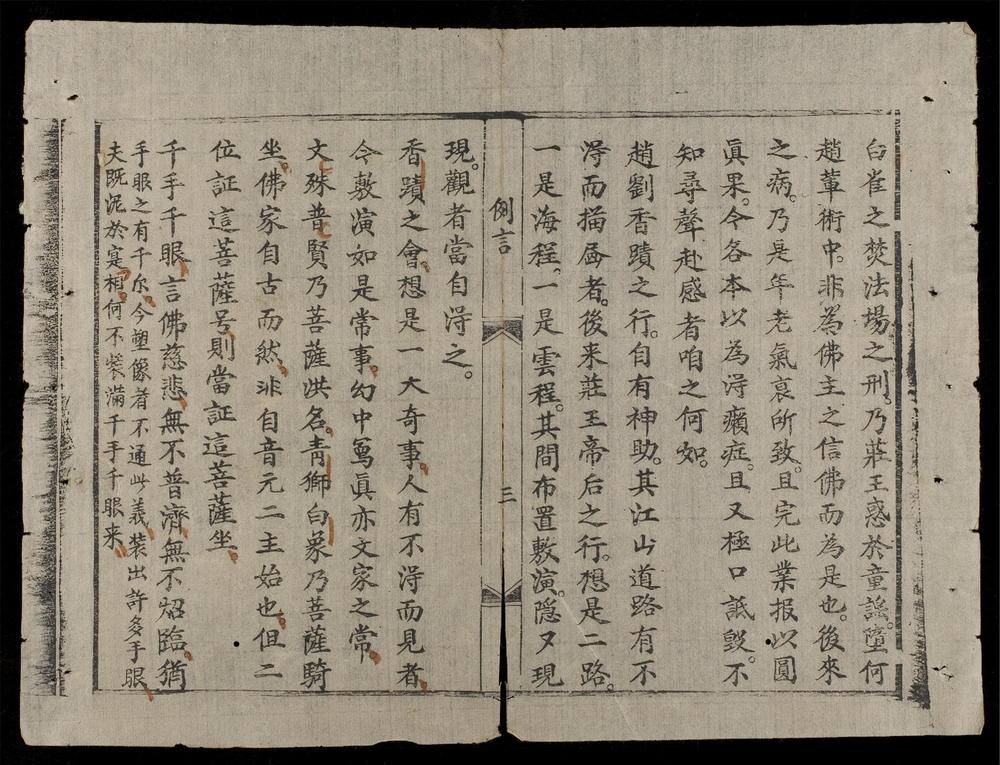 白雀之焚法場之刑。乃莊王惑於童謠。墮何
趙葷術中。非為佛主之信佛而為是也。後來
之病。乃是年老氣衰所致。且完此業报以圓
眞果。今各本以為淂癩症。且又極口詆毀。不
知尋聲赴感者咱之何如。
趙劉香蹟之行。自有神助。其江山道路有不
淂而描画者。後来莊王帝后之行。想是二路。
一是海程。一是雲程。其間布置敷演。隐又現
例言
三
現。觀者當自淂之。
香蹟之會。想是一大奇事。人有不淂而見者
今敷演如是常事。幻中寫眞亦文家之常
文殊普賢乃菩薩洪名。靑獅白象乃菩薩騎
坐。佛家自古而然。非自音元二主始也。但二
位証這菩薩号。則當証這菩薩坐。
千手千眼。言佛慈悲。無不普濟。無不炤臨。猶
手眼之有千尔。今塑像者不通此義。装出許多手眼
夫既泥於寔相。何不装滿千手千眼来